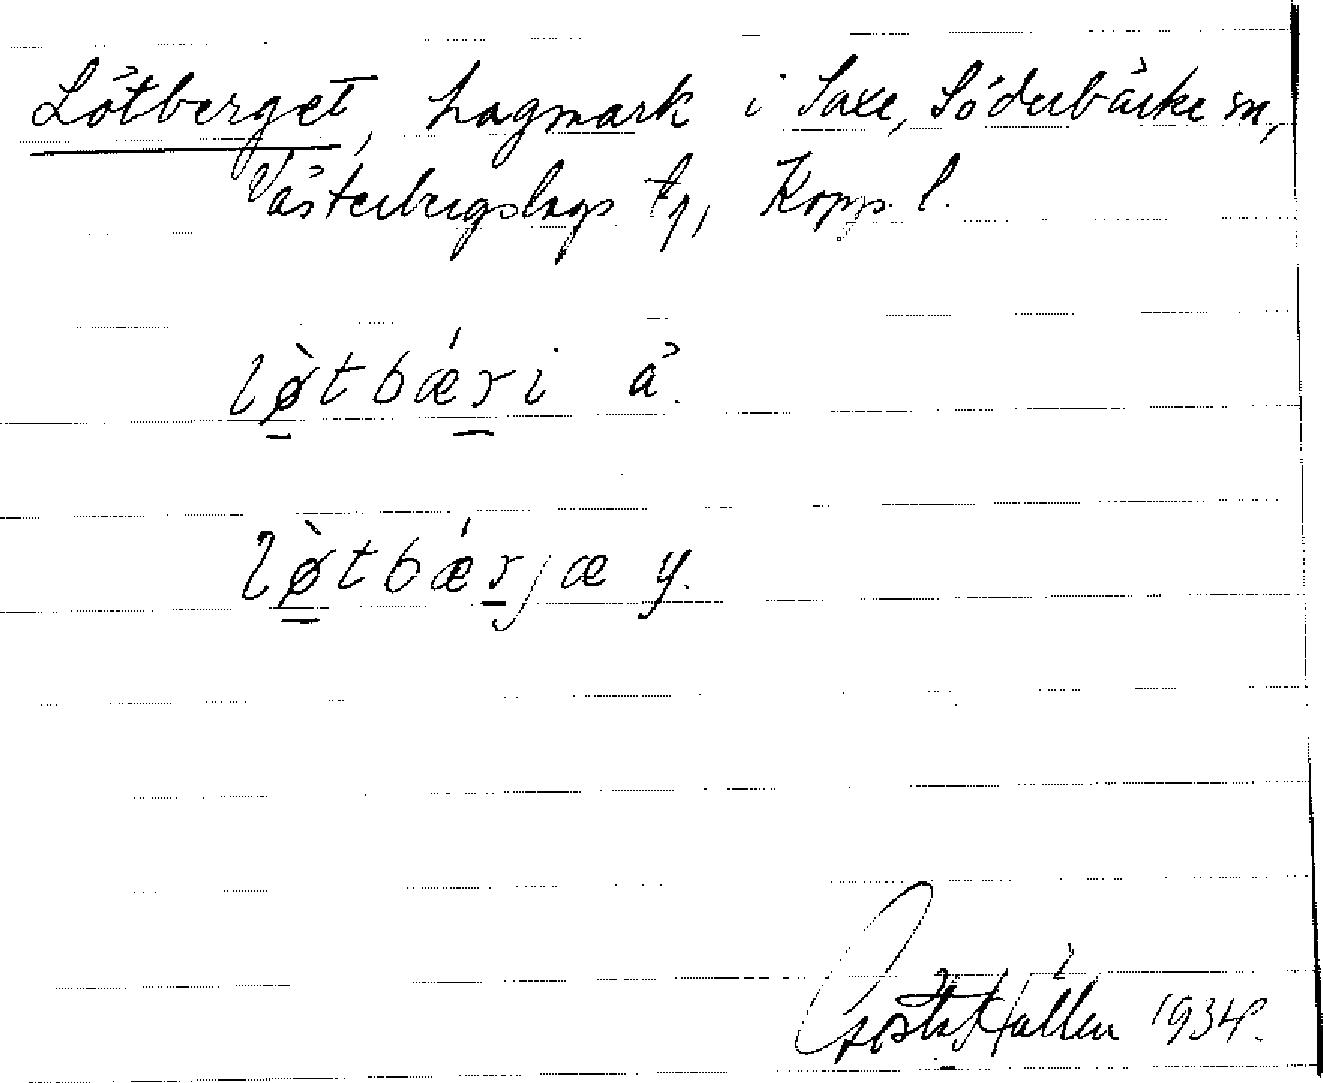 Lötberget, hagmark i Saxe, Söderbärke sn,
Västerbergslags tg, Kopp. l.
lø̀tbǽri ä.
lø̀tbǽrjæ y.
Gösta Hallén 1934.